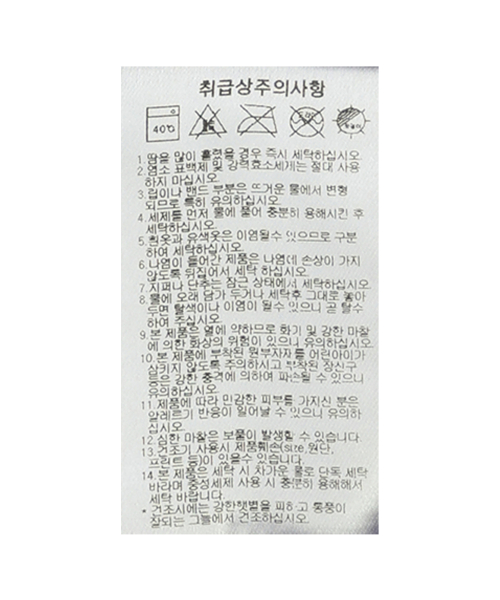 취급상주의사항
40℃
1.땀을 많이 흘렸을 경우 즉시 세탁하십시오.
2.염소 표백제 및 강력효소세게는 절대 사용
하지 마십시오.
3.립이나 밴드 부분은 뜨거운 물에서 변형
되므로 특히 유의하십시오.
4.세제를 먼저 물에 풀어 충분히 용해시킨 후
세탁하십시오.
5.흰옷과 유색옷은 이염될수 있으므로 구분
하여 세탁하십시오.
6.나염이 들어간 제품은 나염에 손상이 가지
않도록 뒤집어서 세탁 하십시오.
7.지퍼나 단추는 잠근 상태에서 세탁하십시오.
8.물에 오래 담가 두거나 세탁후 그대로 놓아
두면 탈색이나 이염이 될수 있으니 곧 탈수
하여 주십시오.
9.본 제품은 열에 약하므로 화기 및 강한 마찰
에 의한 화상의 위험이 있으니 유의하십시오.
10.본 제품에 부착된 원부자재를 어린아이가
삼키지 않도록 주의하시고 부착된 장신구
등은 강한 충격에 의하여 파손될 수 있으니
유의하십시오.
11.제품에 따라 민감한 피부를 가지신 분은
알레르기 반응이 일어날 수 있으니 유의하
십시오.
12.심한 마찰은 보풀이 발생할 수 있습니다.
13.건조기 사용시 제품훼손(size,원단,
프린트 등)이 있을수 있습니다.
14.본 제품은 세탁 시 차가운 물로 단독 세탁
바라며 중성세제 사용 시 충분히 용해해서
세탁 바랍니다.
* 건조시에는 강한햇볕을 피하고 통풍이
잘되는 그늘에서 건조하십시오.